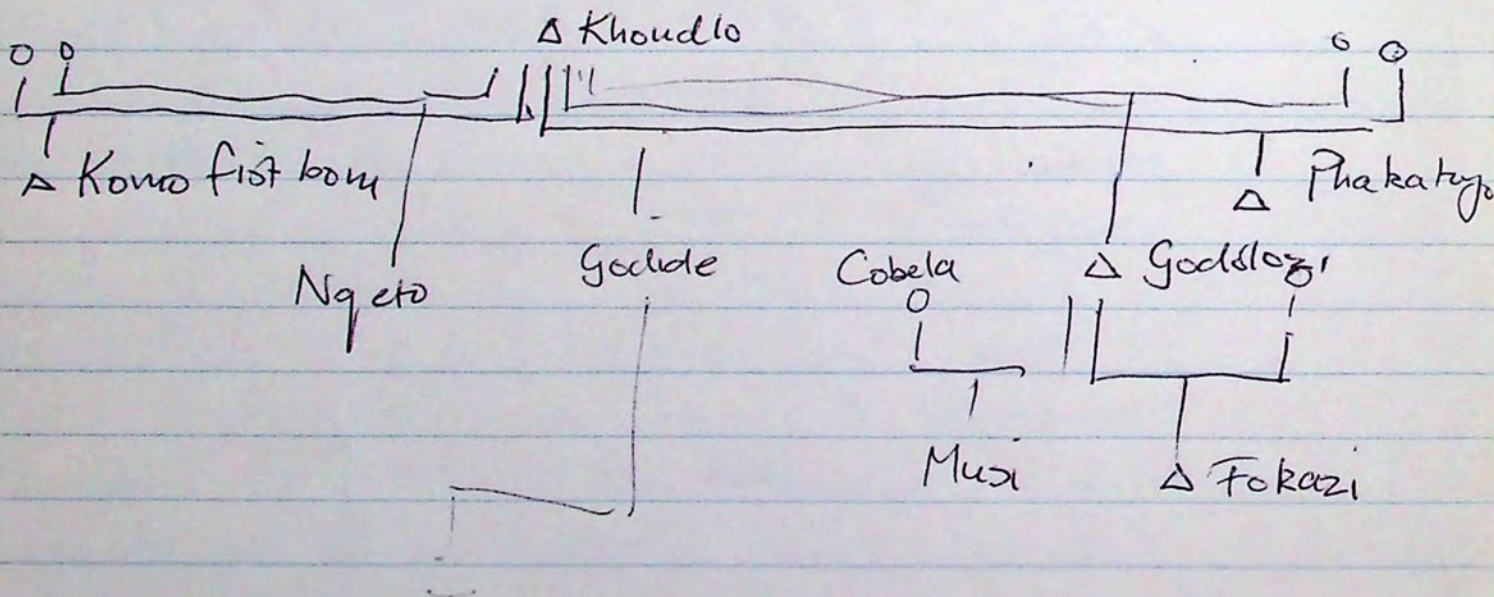 Khondlo
Komo fist born
Phakatayo
Nqeto
Godide
Cobela
Godolozi
Musi
Fokazi